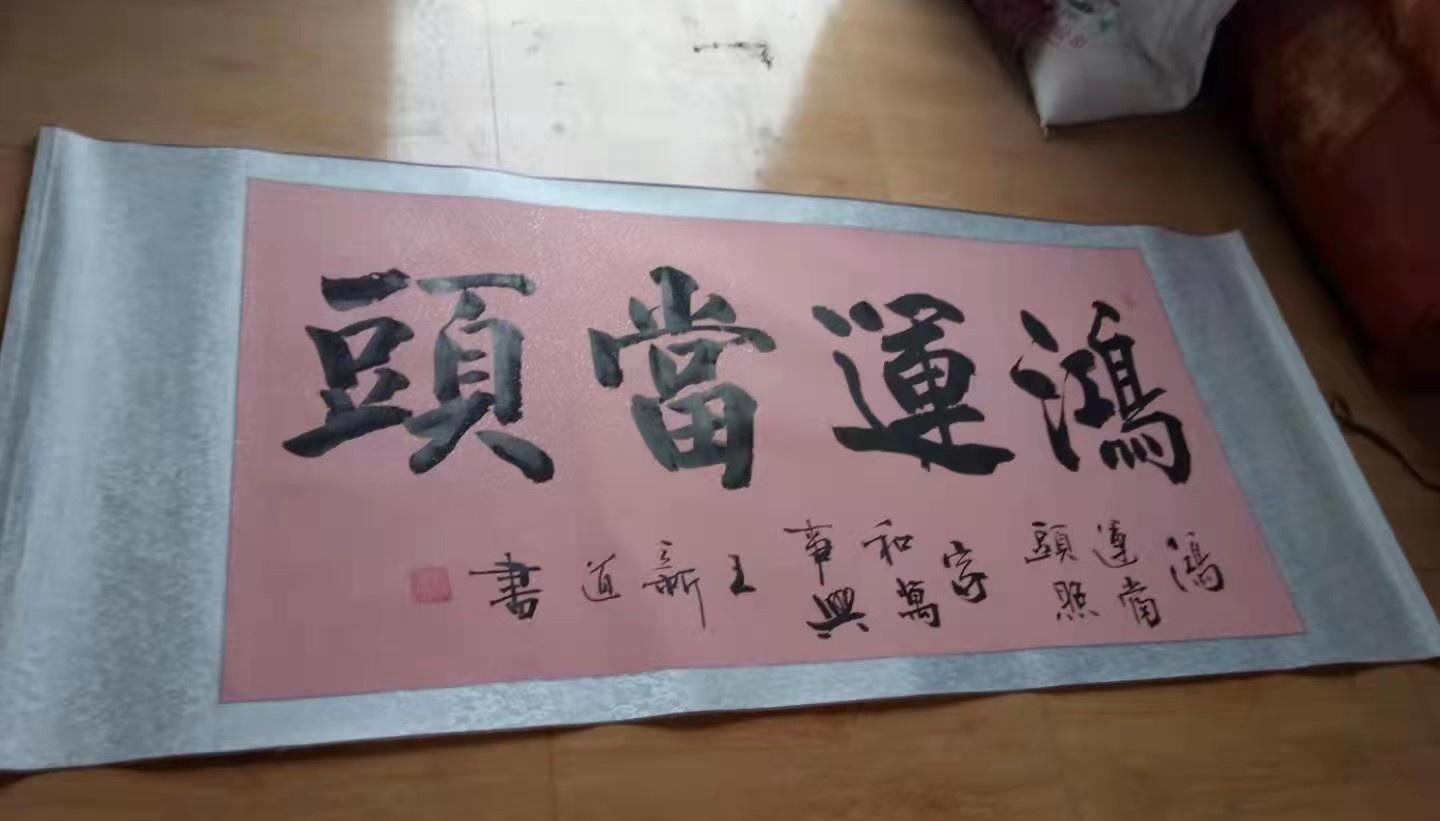 鴻運當頭
鴻運當頭照
家和萬事興
王新道書